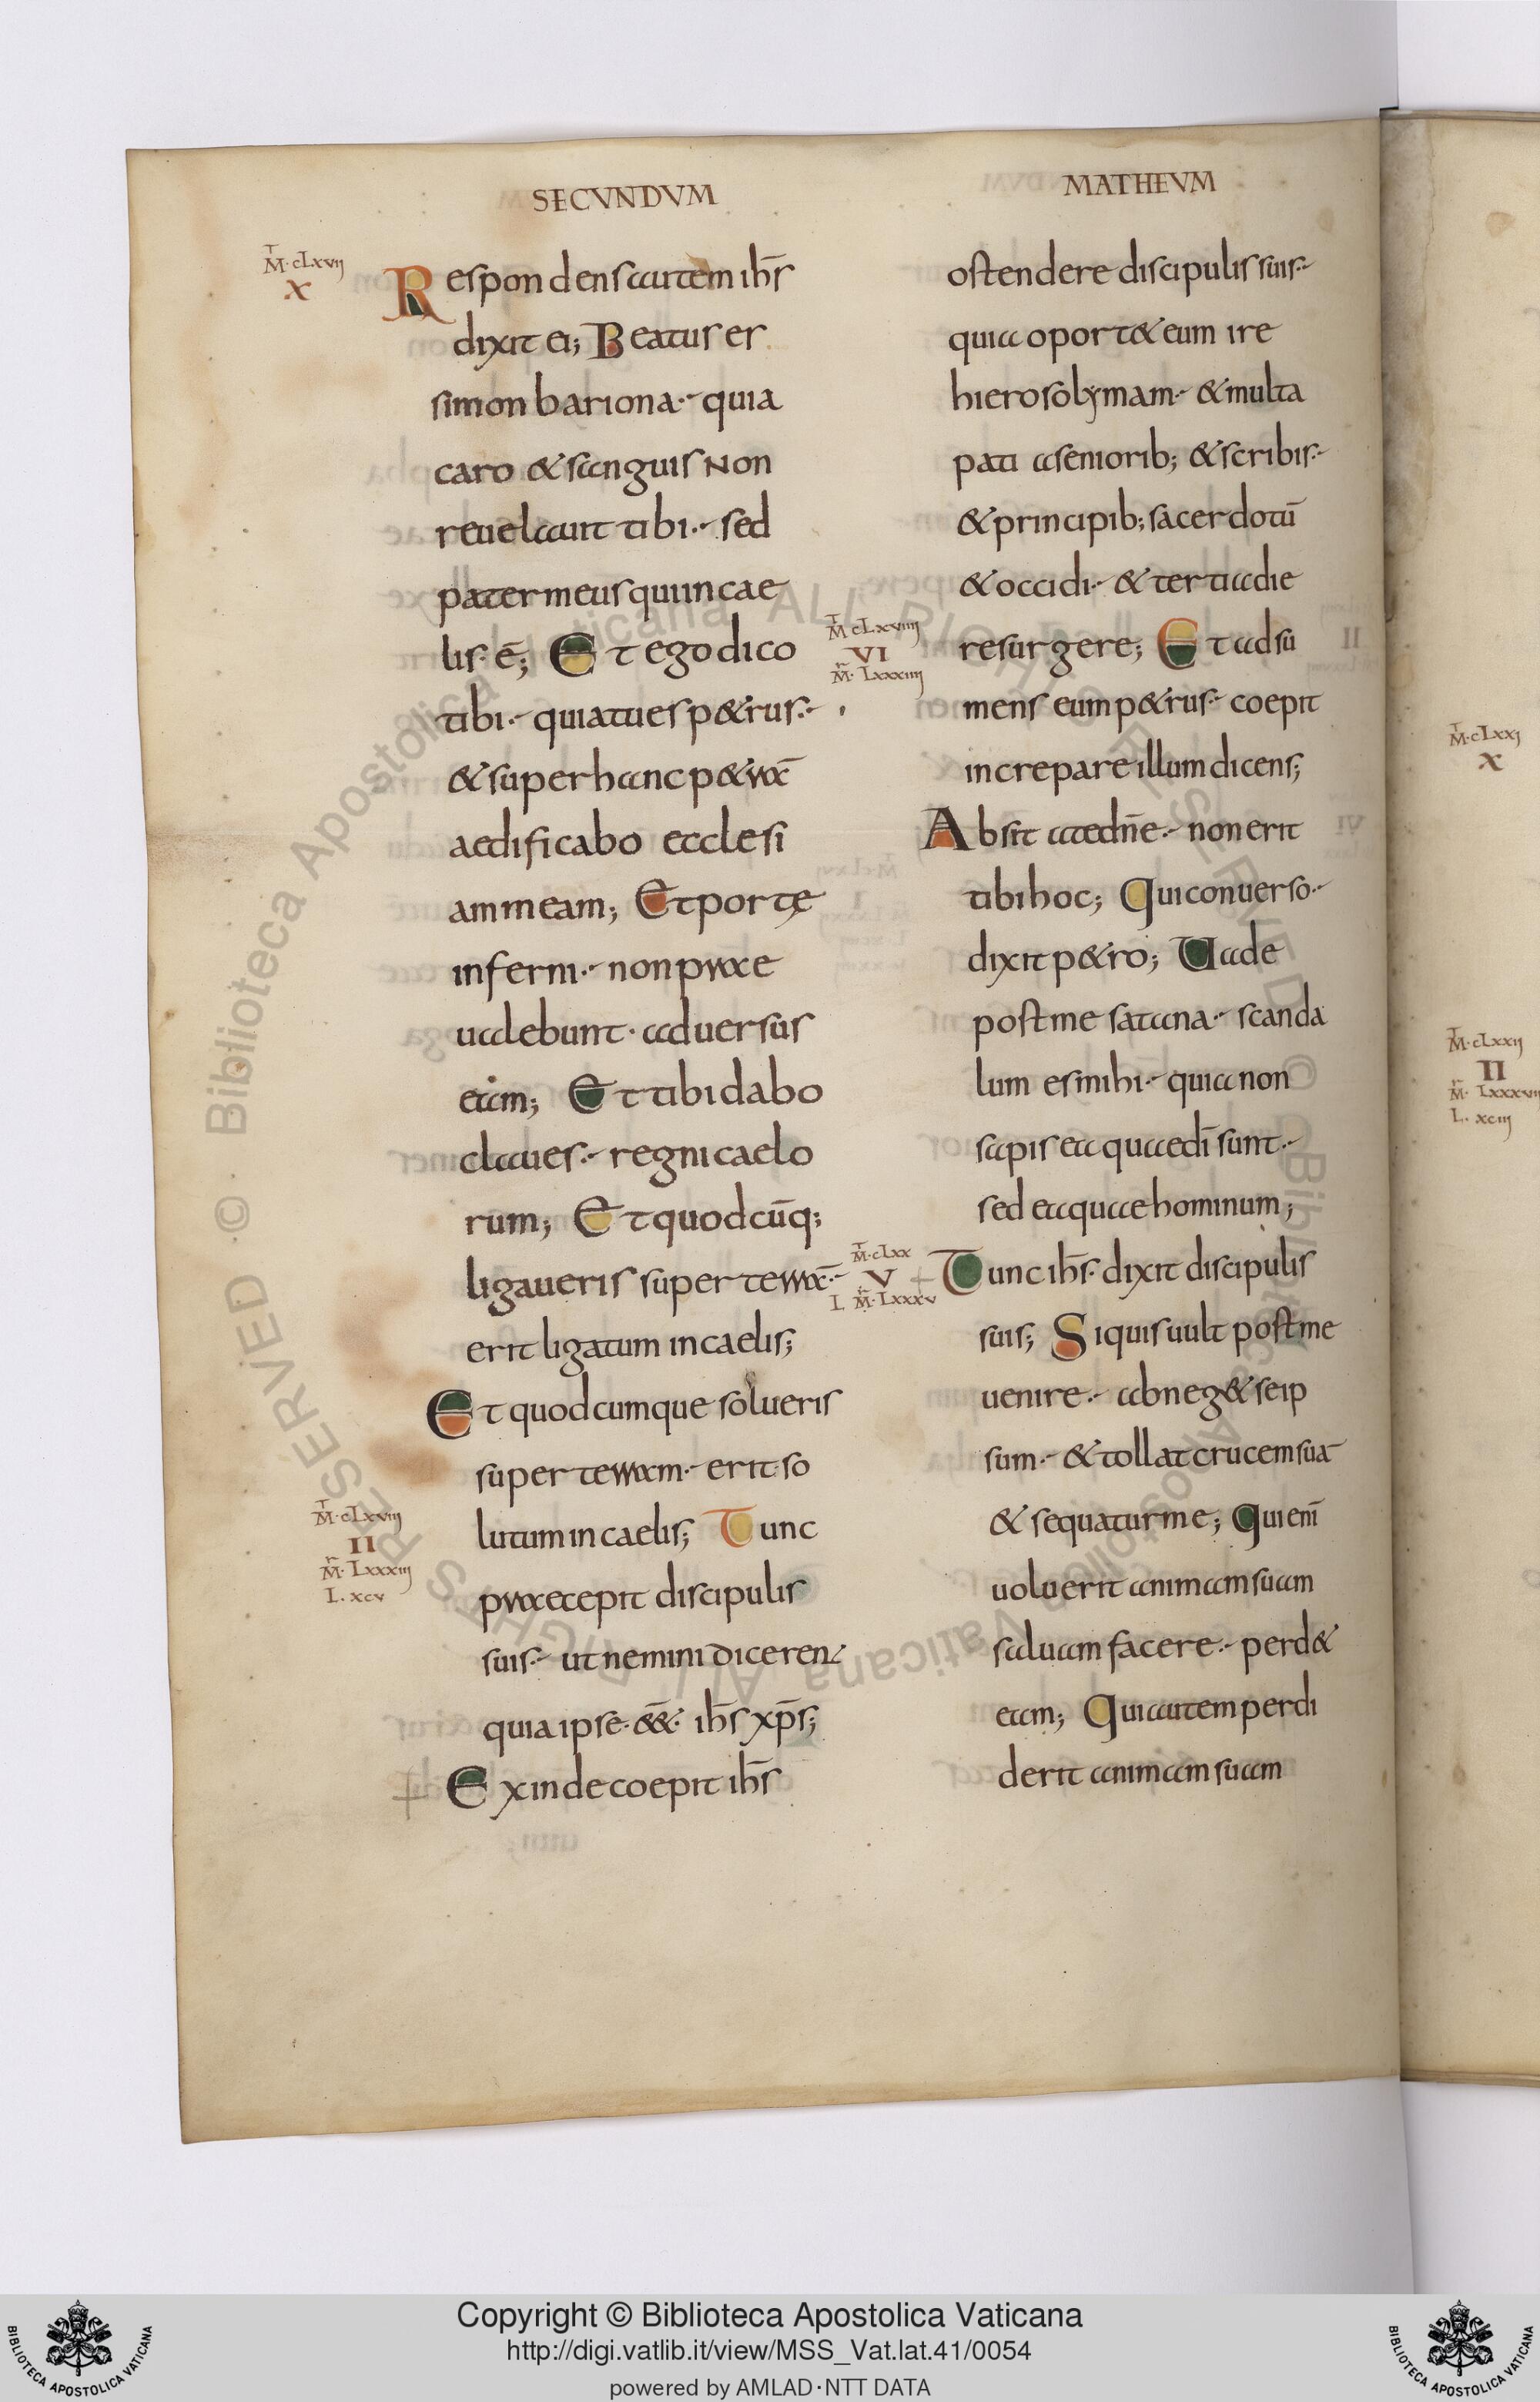 SECVNDVM
M̅·cLxvij
X
Respondens autem ih̅s
dixit ei; Beatus es
simon bariona·- quia
caro & sanguis non
reuelauit tibi·- sed
pater meus qui in cae
lis· e̅; Et ego dico
tibi·- quia tu es p&rus·-
& super hanc p&ra̅
aedificabo ecclesi
am meam; Et portę
inferni·- non prae
ualebunt· aduersus
eam; Et tibi dabo
claues·- regni caelo
rum; Et quodcu̅q;
ligaueris super terra̅·-
erit ligatum in caelis;
Et quodcumque solueris
super terram·- erit so
M̅·cLxviij
II
M̅·Lxxxiij
L·xcv
lutum in caelis; Tunc
praecepit discipulis
suis·- ut nemini diceren
quia ipse· &&· ih̅s xp̅s;
Exinde coepit ih̅s
MATHEVM
ostendere discipulis suis·-
quia oport& eum ire
hierosolymam·- & multa
pati aseniorib; & scribis·-
& principib; sacerdotu̅
& occidi·- & tertia die
M̅ cLxviiij
VI
M̅·Lxxxiiij
resurgere; Et adsu
mens eum p&rus·- coepit
increpare illum dicens;
Absit a te dn̅e·- non erit
tibi hoc; Qui conuerso·-
dixit p&ro; Uade
post me satana·- scanda
lum es mihi·- quia non
sapis ea quae di̅ sunt·-
sed ea quae hominum;
M̅·cLxx
V
L M̅·Lxxxv
Tunc ih̅s· dixit discipulis
suis; Si quis uult post me
uenire·- abneg& seip
sum·- & tollat crucem sua̅
& sequatur me; Qui eni̅
uoluerit animam suam
saluam facere·- perd&
eam; Qui autem perdi
derit animam suam
M̅·cLxxj
X
M̅·cLxxij
II
M̅·Lxxxvi
L·xciij
Copyright © Biblioteca Apostolica Vaticana
http://digi.vatlib.it/view/MSS_Vat.lat.41/0054
powered by AMLAD·NTT DATA
BIBLIOTECA APOSTOLICA VATICANA
BIBLIOTECA APOSTOLICA VATICANA